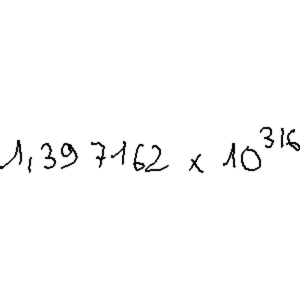 1,397162 x 10³¹⁶